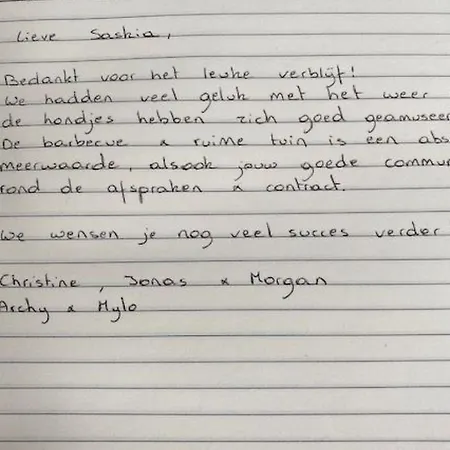 Lieve Saskia,
Bedankt voor het leuke verblijf!
We hadden veel geluk met het weer
de hondjes hebben zich goed geamuseer
De barbecue & ruime tuin is een abs
meerwaarde, alsook jouw goede commu
rond de afspraken & contract.
We wensen je nog veel succes verder
Christine, Jonas & Morgan
Archy & Mylo